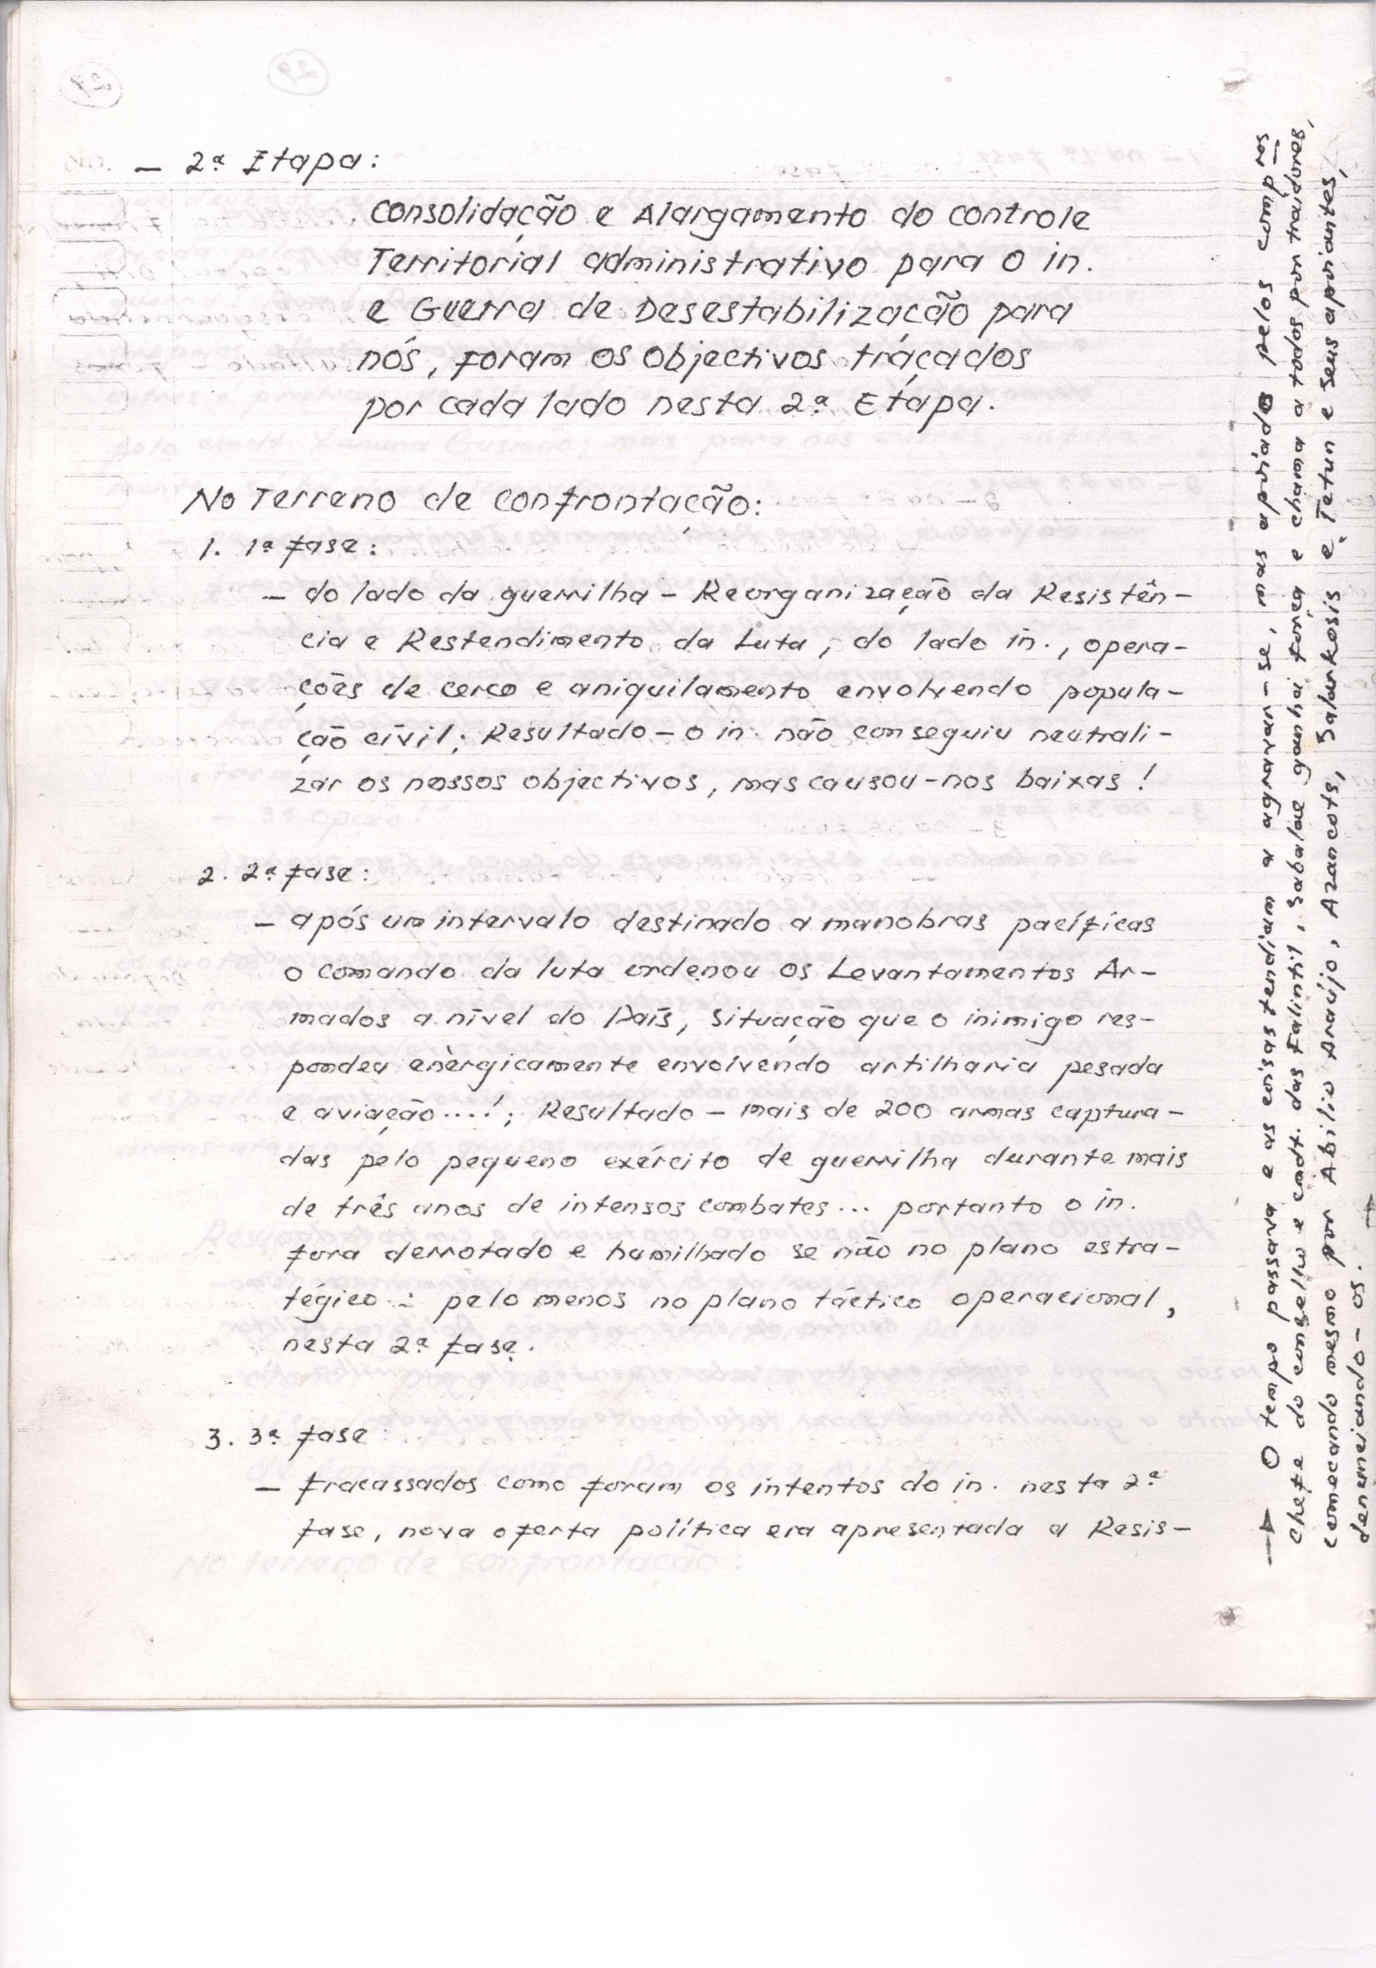 — 2ª Etapa:
Consolidação e Alargamento do controle
Territorial administrativo para o in.
e Guerra de Desestabilização para
nós, foram os objectivos traçados
por cada lado nesta 2ª Etapa.
No Terreno de confrontação:
1. 1ª fase:
— do lado da guerrilha — Reorganização da Resistên-
cia e Restendimento da Luta, do lado in., opera-
ções de cerco e aniquilamento envolvendo popula-
ção civil; Resultado — o in. não conseguiu neutrali-
zar os nossos objectivos, mas causou-nos baixas!
2. 2ª fase:
— após um intervalo destinado a manobras pacíficas
o comando da luta ordenou os Levantamentos Ar-
mados a nível do País, Situação que o inimigo res-
pondeu enèrgicamente envolvendo artilharia pesada
e aviação....!; Resultado — mais de 200 armas captura-
das pelo pequeno exército de guerrilha durante mais
de três anos de intensos combates... portanto o in.
fora derrotado e humilhado se não no plano estra-
tégico: pelo menos no plano táctico operacional,
nesta 2ª fase.
3. 3ª fase:
— Fracassados como foram os intentos do in. nesta 2ª
fase, nova oferta política era apresentada a Resis-
→ O tempo passara e as coisas tendiam a agravar-se, mas apoiado pelos comp̄ros
chefe do conselho e cmdt. das Falintil, Sabalae ganhai força e chama a todos por traidores,
comecando mesmo por Abílio Araújo, Azancots, Salankosis e Tetun e Seus apoiantes,
denunciando-os. →